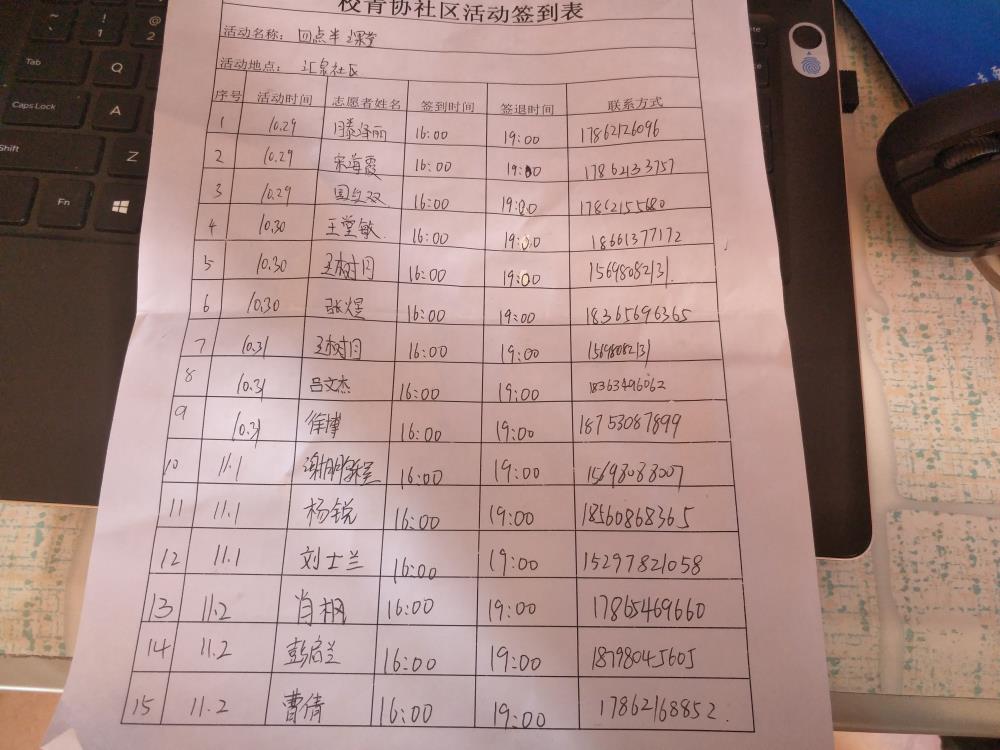 校青协社区活动签到表
活动名称： 四点半课堂
活动地点： 汇泉社区
序号 活动时间 志愿者姓名 签到时间 签退时间 联系方式
1 10.29 滕泽丽 16:00 19:00 17862126096
2 10.29 宋海霞 16:00 19:00 17862133757
3 10.29 16:00 19:00 17862155680
4 10.30 王堂敏 16:00 19:00 18661377172
5 10.30 王树月 16:00 19:00 15698082131
6 10.30 张煜 16:00 19:00 18365696365
7 10.31 王树月 16:00 19:00 15698082131
8 10.31 吕文杰 16:00 19:00 18363496062
9 10.31 徐博 16:00 19:00 18753087899
10 11.1 16:00 19:00 15698088007
11 11.1 杨锐 16:00 19:00 18560868365
12 11.1 刘士兰 16:00 19:00 15297821058
13 11.2 肖枫 16:00 19:00 17865469660
14 11.2 彭启兰 16:00 19:00 18798045605
15 11.2 曹倩 16:00 19:00 17862168852.
Tab
Q
Caps Lock
A
Shift
Z
Fn
!
1
@
2